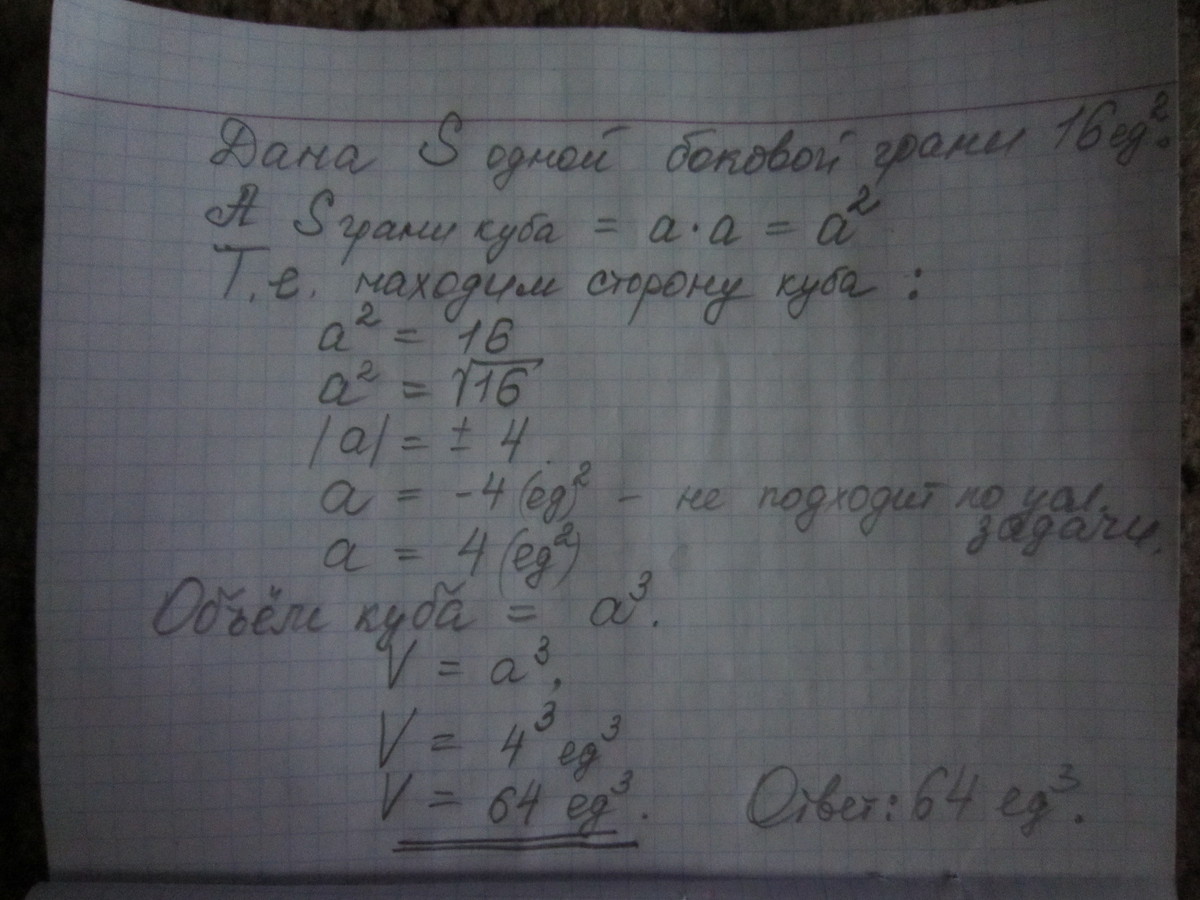 Дана S одной боковой грани 16 ед².
А S грани куба = a·a = a²
Т.е. находим сторону куба:
a² = 16
a² = √16
|a| = ± 4
a = -4 (ед)² - не подходит по усл.
задачи.
a = 4 (ед²)
Объём куба = a³.
V = a³.
V = 4³ ед³
V = 64 ед³. Ответ: 64 ед³.